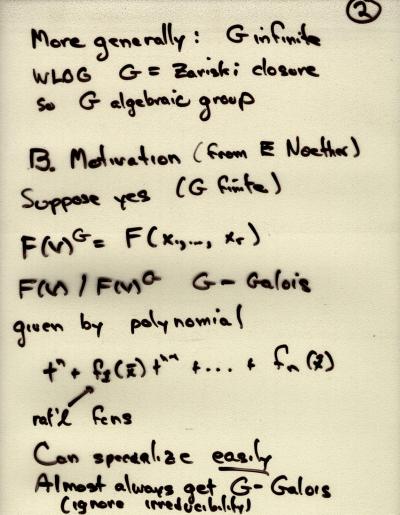 2
More generally: G infinite
WLOG G = Zariski closure
so G algebraic group
B. Motivation (from E Noether)
Suppose yes (G finite)
F(V)^G = F(x_1,..., x_r)
F(V) / F(V)^G G-Galois
given by polynomial
t^n + f_1(x̄) t^{n-1} + ... + f_n(x̄)
rat'l fcns
Can specialize easily
Almost always get G-Galois
(ignore irreducibility)